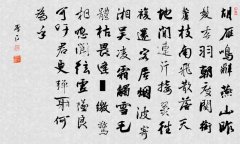 胡雁鳴辭燕山昨
發委羽朝度關銜
蘆枝南飛散落天
地間連行接翼往
復還客居烟波寄
湘吳凌霜觸雪毛
體枯畏逢繳驚
相呼聞弦虛墜良
可吁君更彈射何
為乎